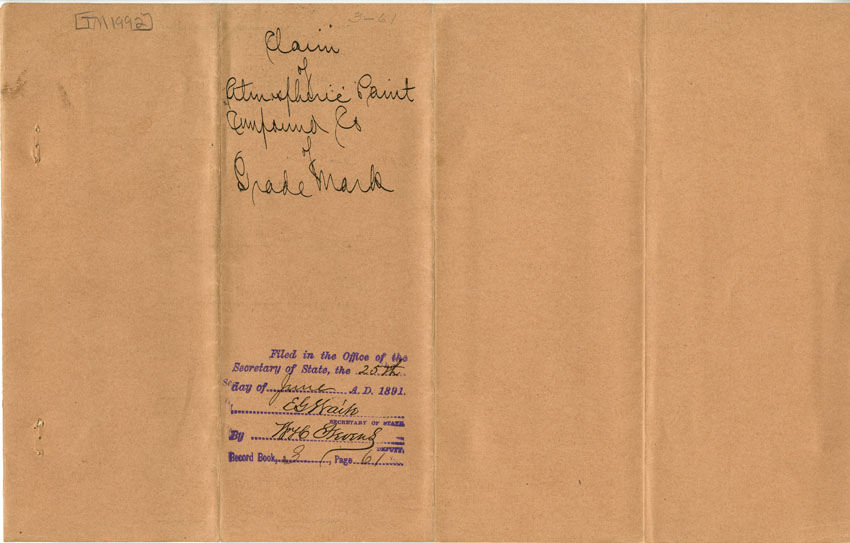 TM1992
3-61
Claim
of
Atmospheric Paint
Compound Co
of
Trade Mark
Filed in the Office of the
Secretary of State, the 25th
day of June A. D. 1891.
E G Waite
SECRETARY OF STATE.
By Wm C Stevens
DEPUTY.
Record Book, 3, Page 61